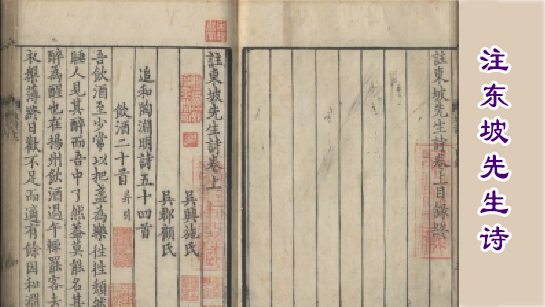 注东坡先生诗
註東坡先生詩卷上目錄終
註東坡先生詩卷上
吳興施氏
吳郡顧氏
追和陶淵明詩五十四首
飲酒二十首 并引
吾飲酒至少常以把盞為樂往往頹
睡人見其醉而吾中了然蓋莫能名其
醉為醒也在揚州飲酒過午輒罷客去
衣槃薄終日歡不足而適有餘因和淵